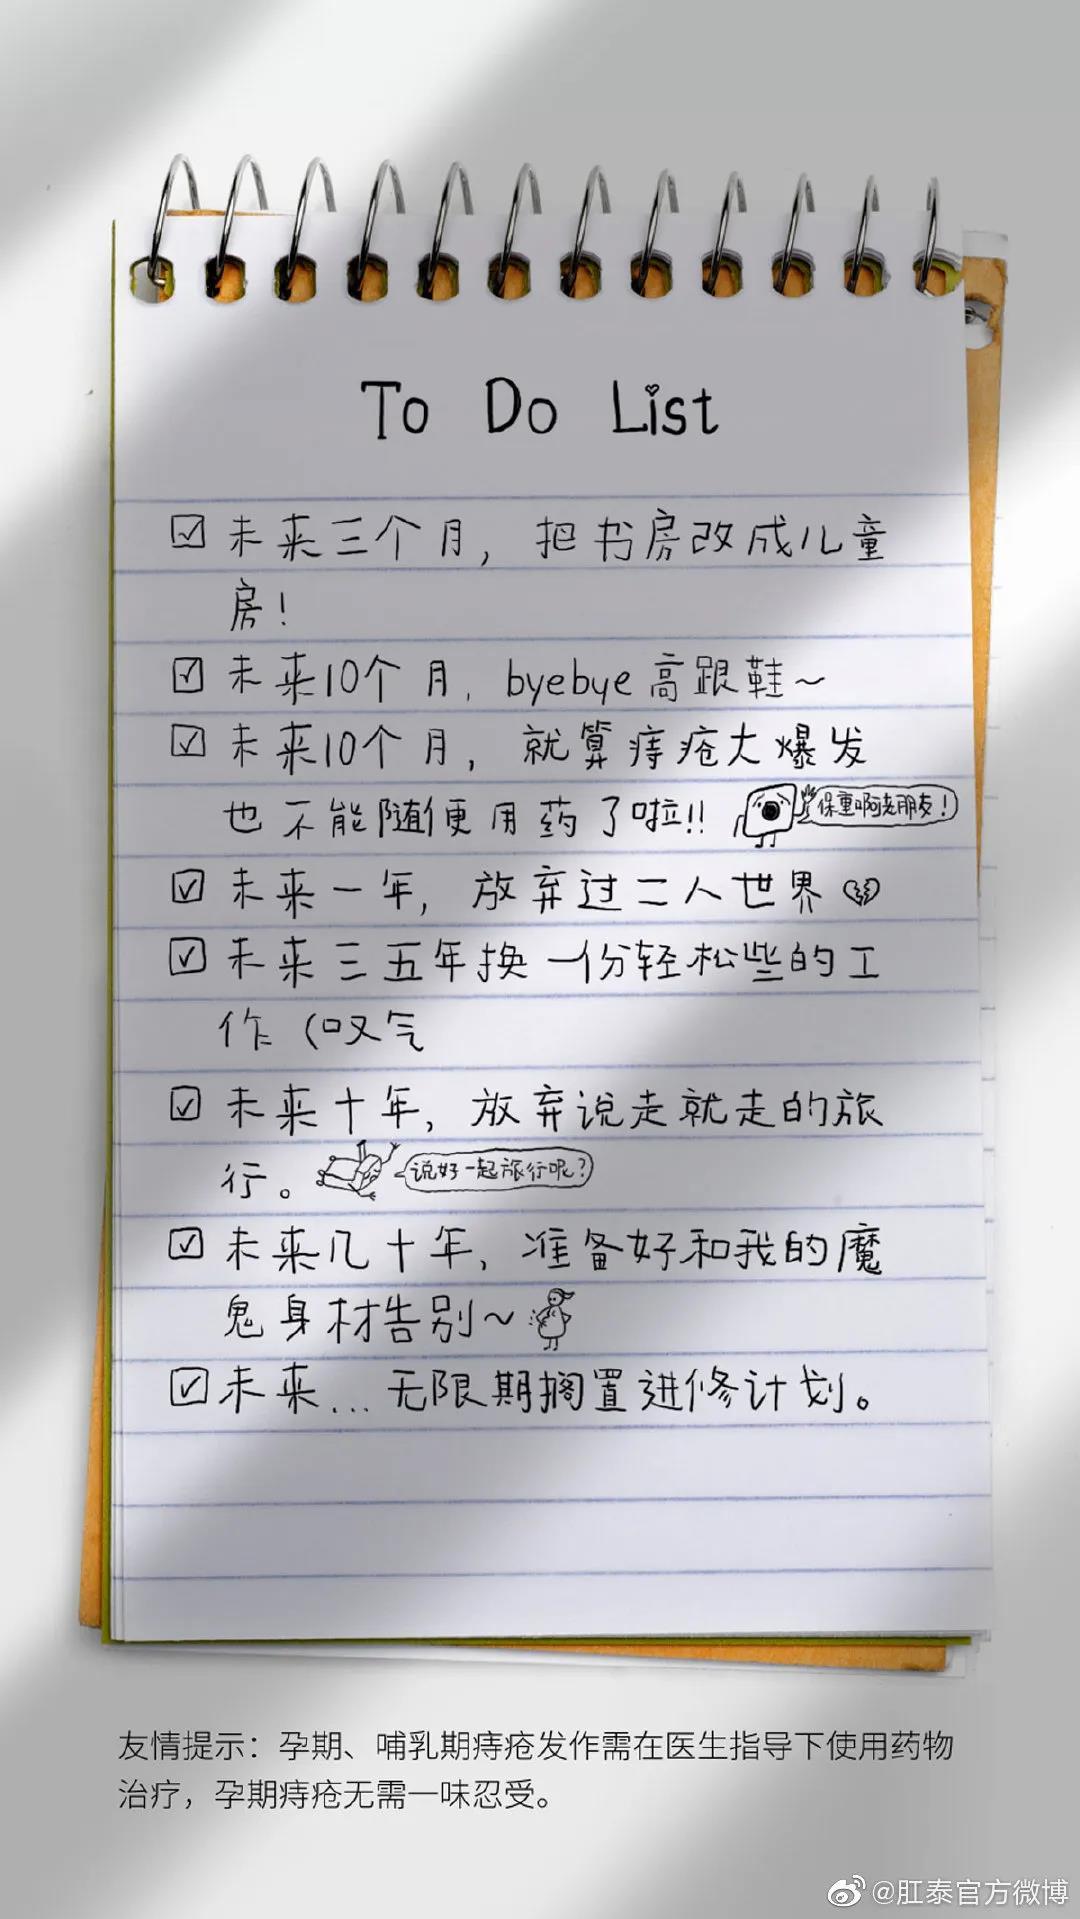 To Do List
未来三个月，把书房改成儿童
房！
未来10个月，byebye高跟鞋～
未来10个月，就算痔疮大爆发
也不能随便用药了啦!!
保重啊老朋友！
未来一年，放弃过二人世界
未来三五年换一份轻松些的工
作（叹气
未来十年，放弃说走就走的旅
行。
说好一起旅行呢？
未来几十年，准备好和我的魔
鬼身材告别～
未来...无限期搁置进修计划。
友情提示：孕期、哺乳期痔疮发作需在医生指导下使用药物
治疗，孕期痔疮无需一味忍受。
@肛泰官方微博